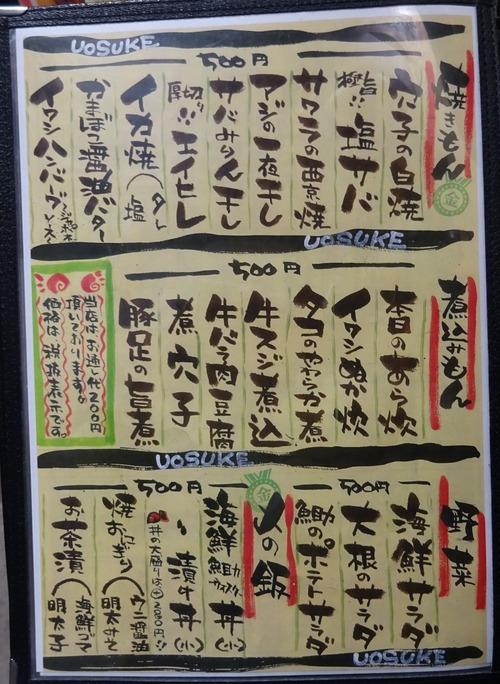 UOSUKE
500円
焼きもん
金
穴子の白焼
極旨!! 塩サバ
サワラの西京焼
アジの一夜干し
サバみりん干し
厚切り!! エイヒレ
イカ焼(タレ 塩
醤油バター
イワシハンバーグ
UOSUKE
500円
煮込みもん
本日のあら炊
イワシぬか炊
タコのやわらか煮
牛スジ煮込
牛バラ肉豆腐
煮穴子
豚足の旨煮
当店はお通し代200円
頂いております。
価格は税抜表示です。
UOSUKE
500円
野採
海鮮サラダ
大根のサラダ
のポテトサラダ
500円
〆の飯
海鮮 丼
漬け丼
焼おにぎり(ウニ醤油 明太
お茶漬(海鮮ゴマ 明太子
UOSUKE